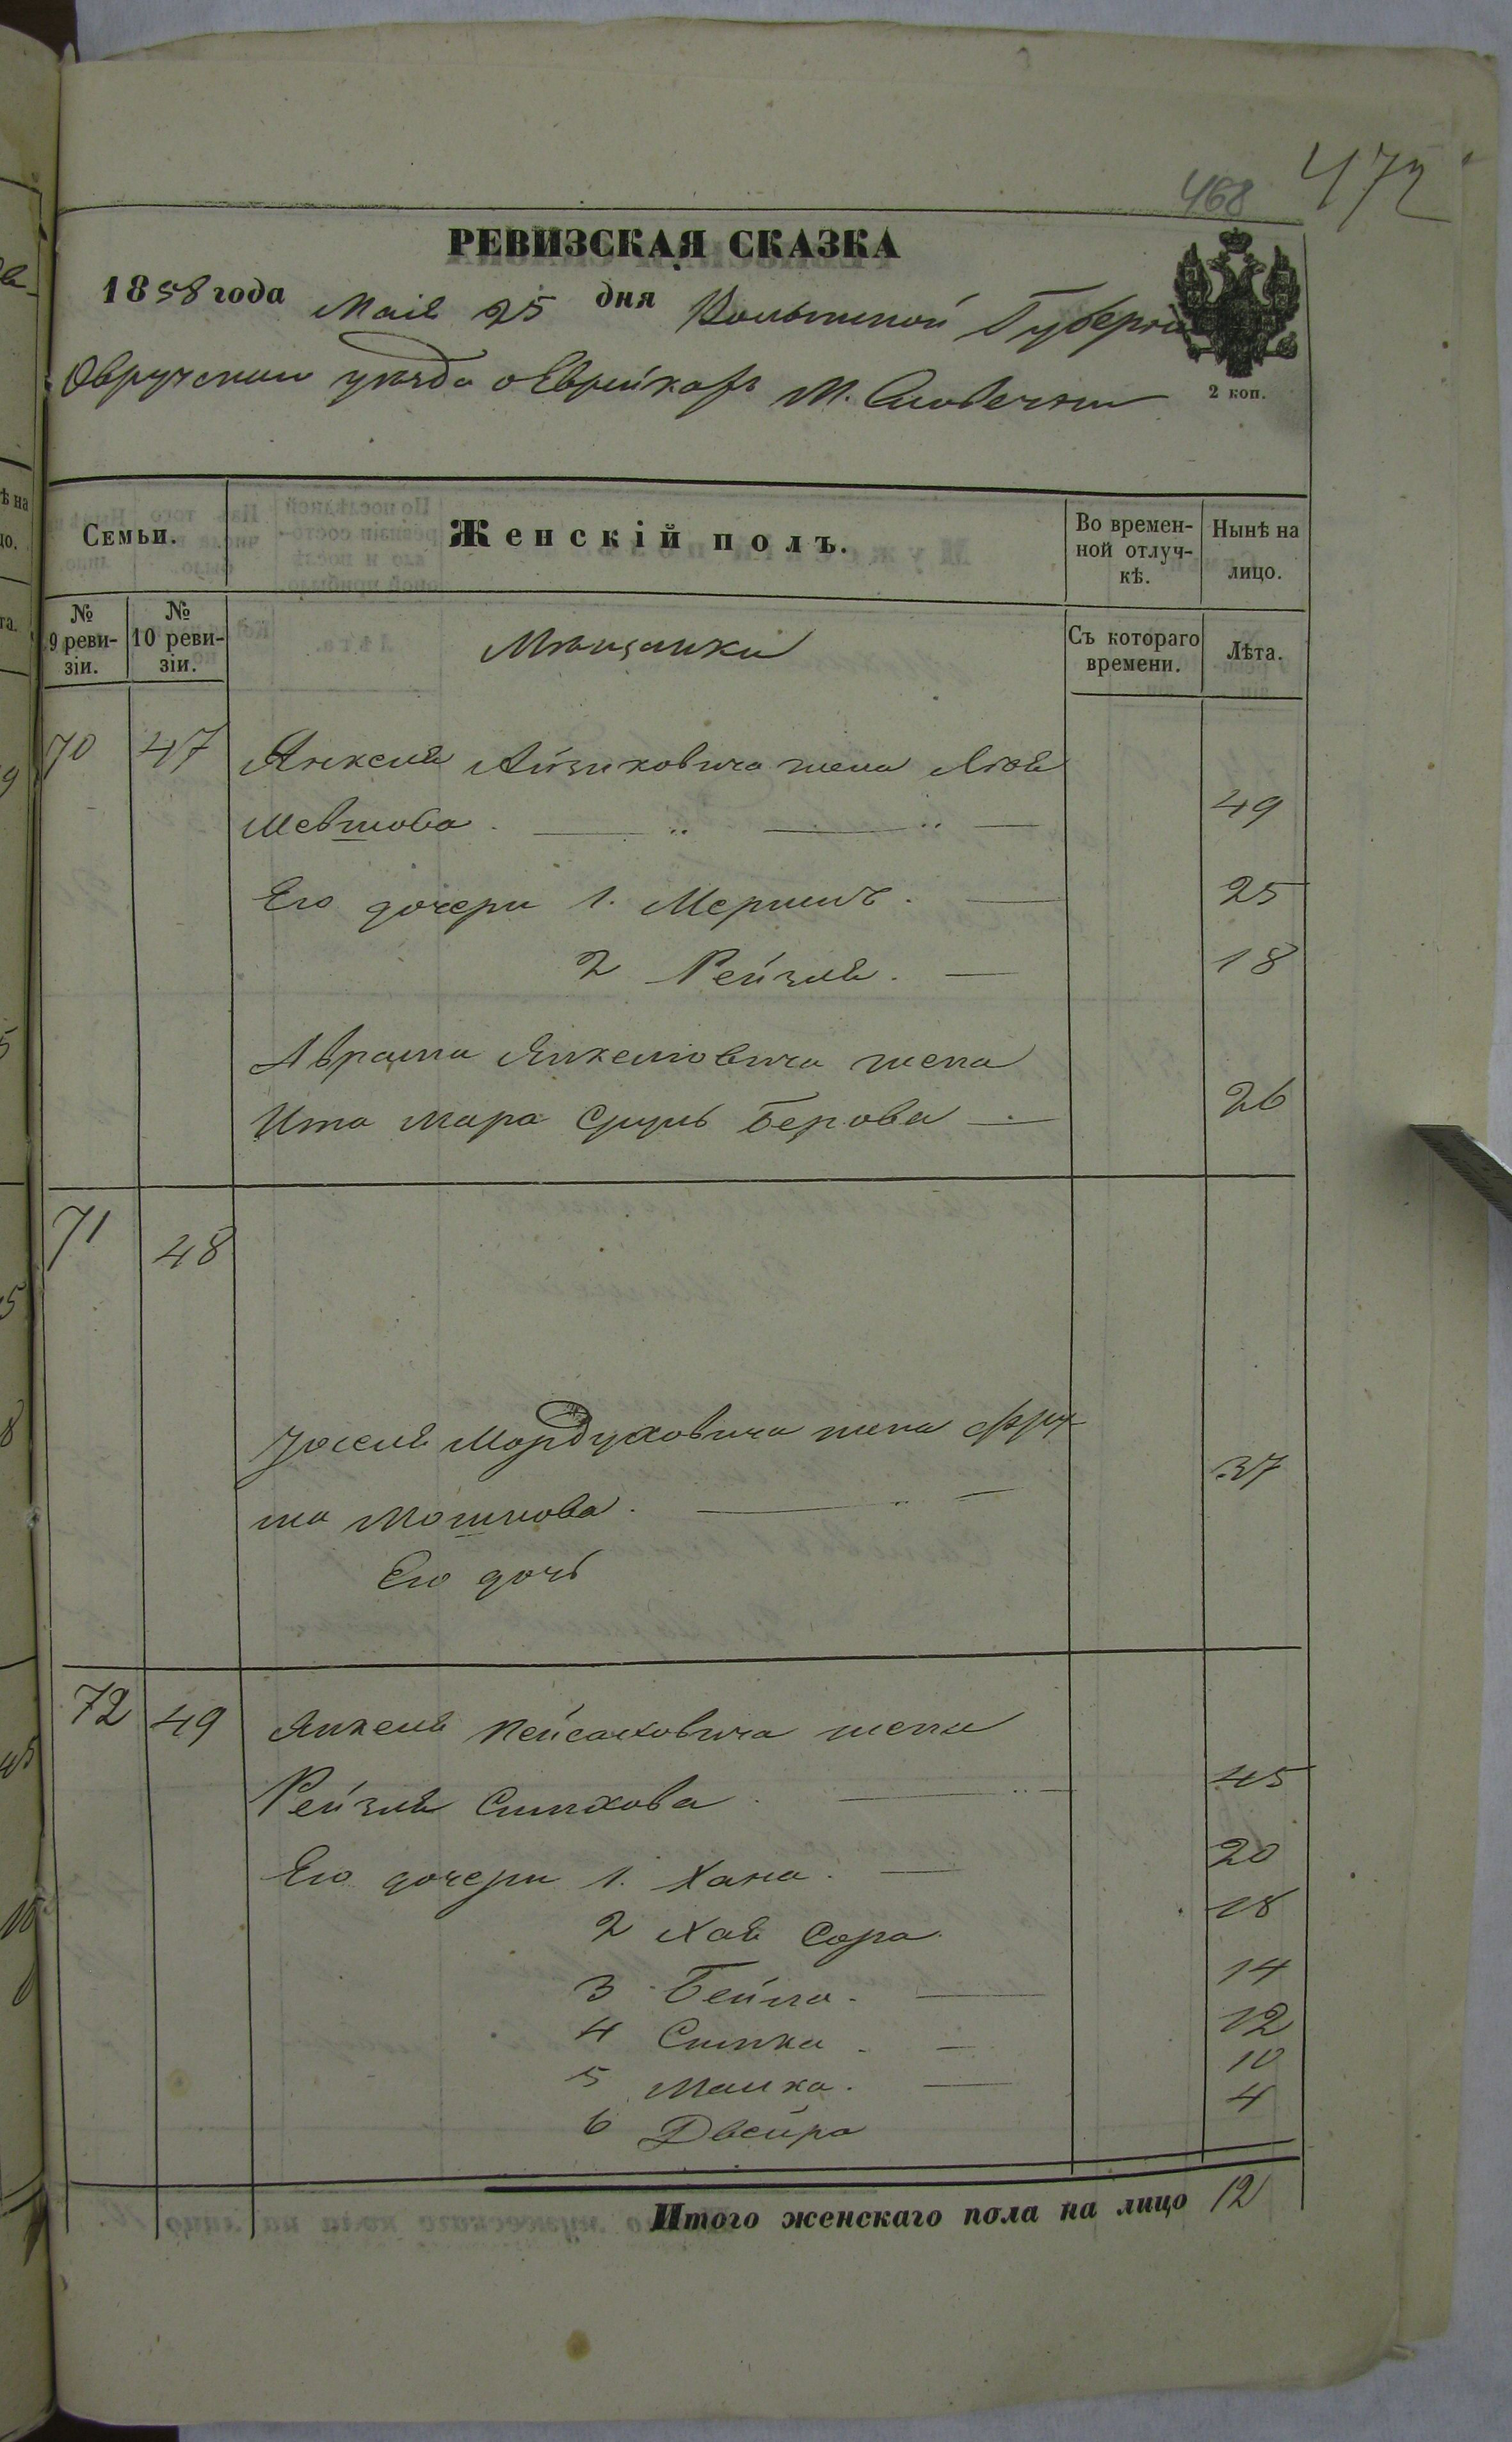 472
468
РЕВИЗСКАЯ СКАЗКА
1858 года Маія 25 дня Волынской Губерніи
Овручскаго уѣзда о Еврейкахъ М. Словечни
2 коп.
Семьи. Женскій полъ. Во времен-ной отлуч-кѣ. Нынѣ на лицо.
№ 9 реви-зіи. № 10 реви-зіи. Мѣщанки Съ котораго времени. Лѣта.
70 47 Янкеля Айзиковича жена
Мевшова 49
Его дочери 1. 25
2 Рейзля. 18
Аврама Янкелювича жена
Ита Мара Сруль Берова 26
71 48
Іоселя Мордуховича жена Фру-
ма Мошкова. 37
Его дочь
72 49 Янкеля Пейсаховича жена
Рейзля Симхова. 45
Его дочери 1. Хана. 20
2 Хая Сора. 18
3 Бейла. 14
4 Симка. 12
5 Малка. 10
6 Двейра 4
Итого женскаго пола на лицо 12